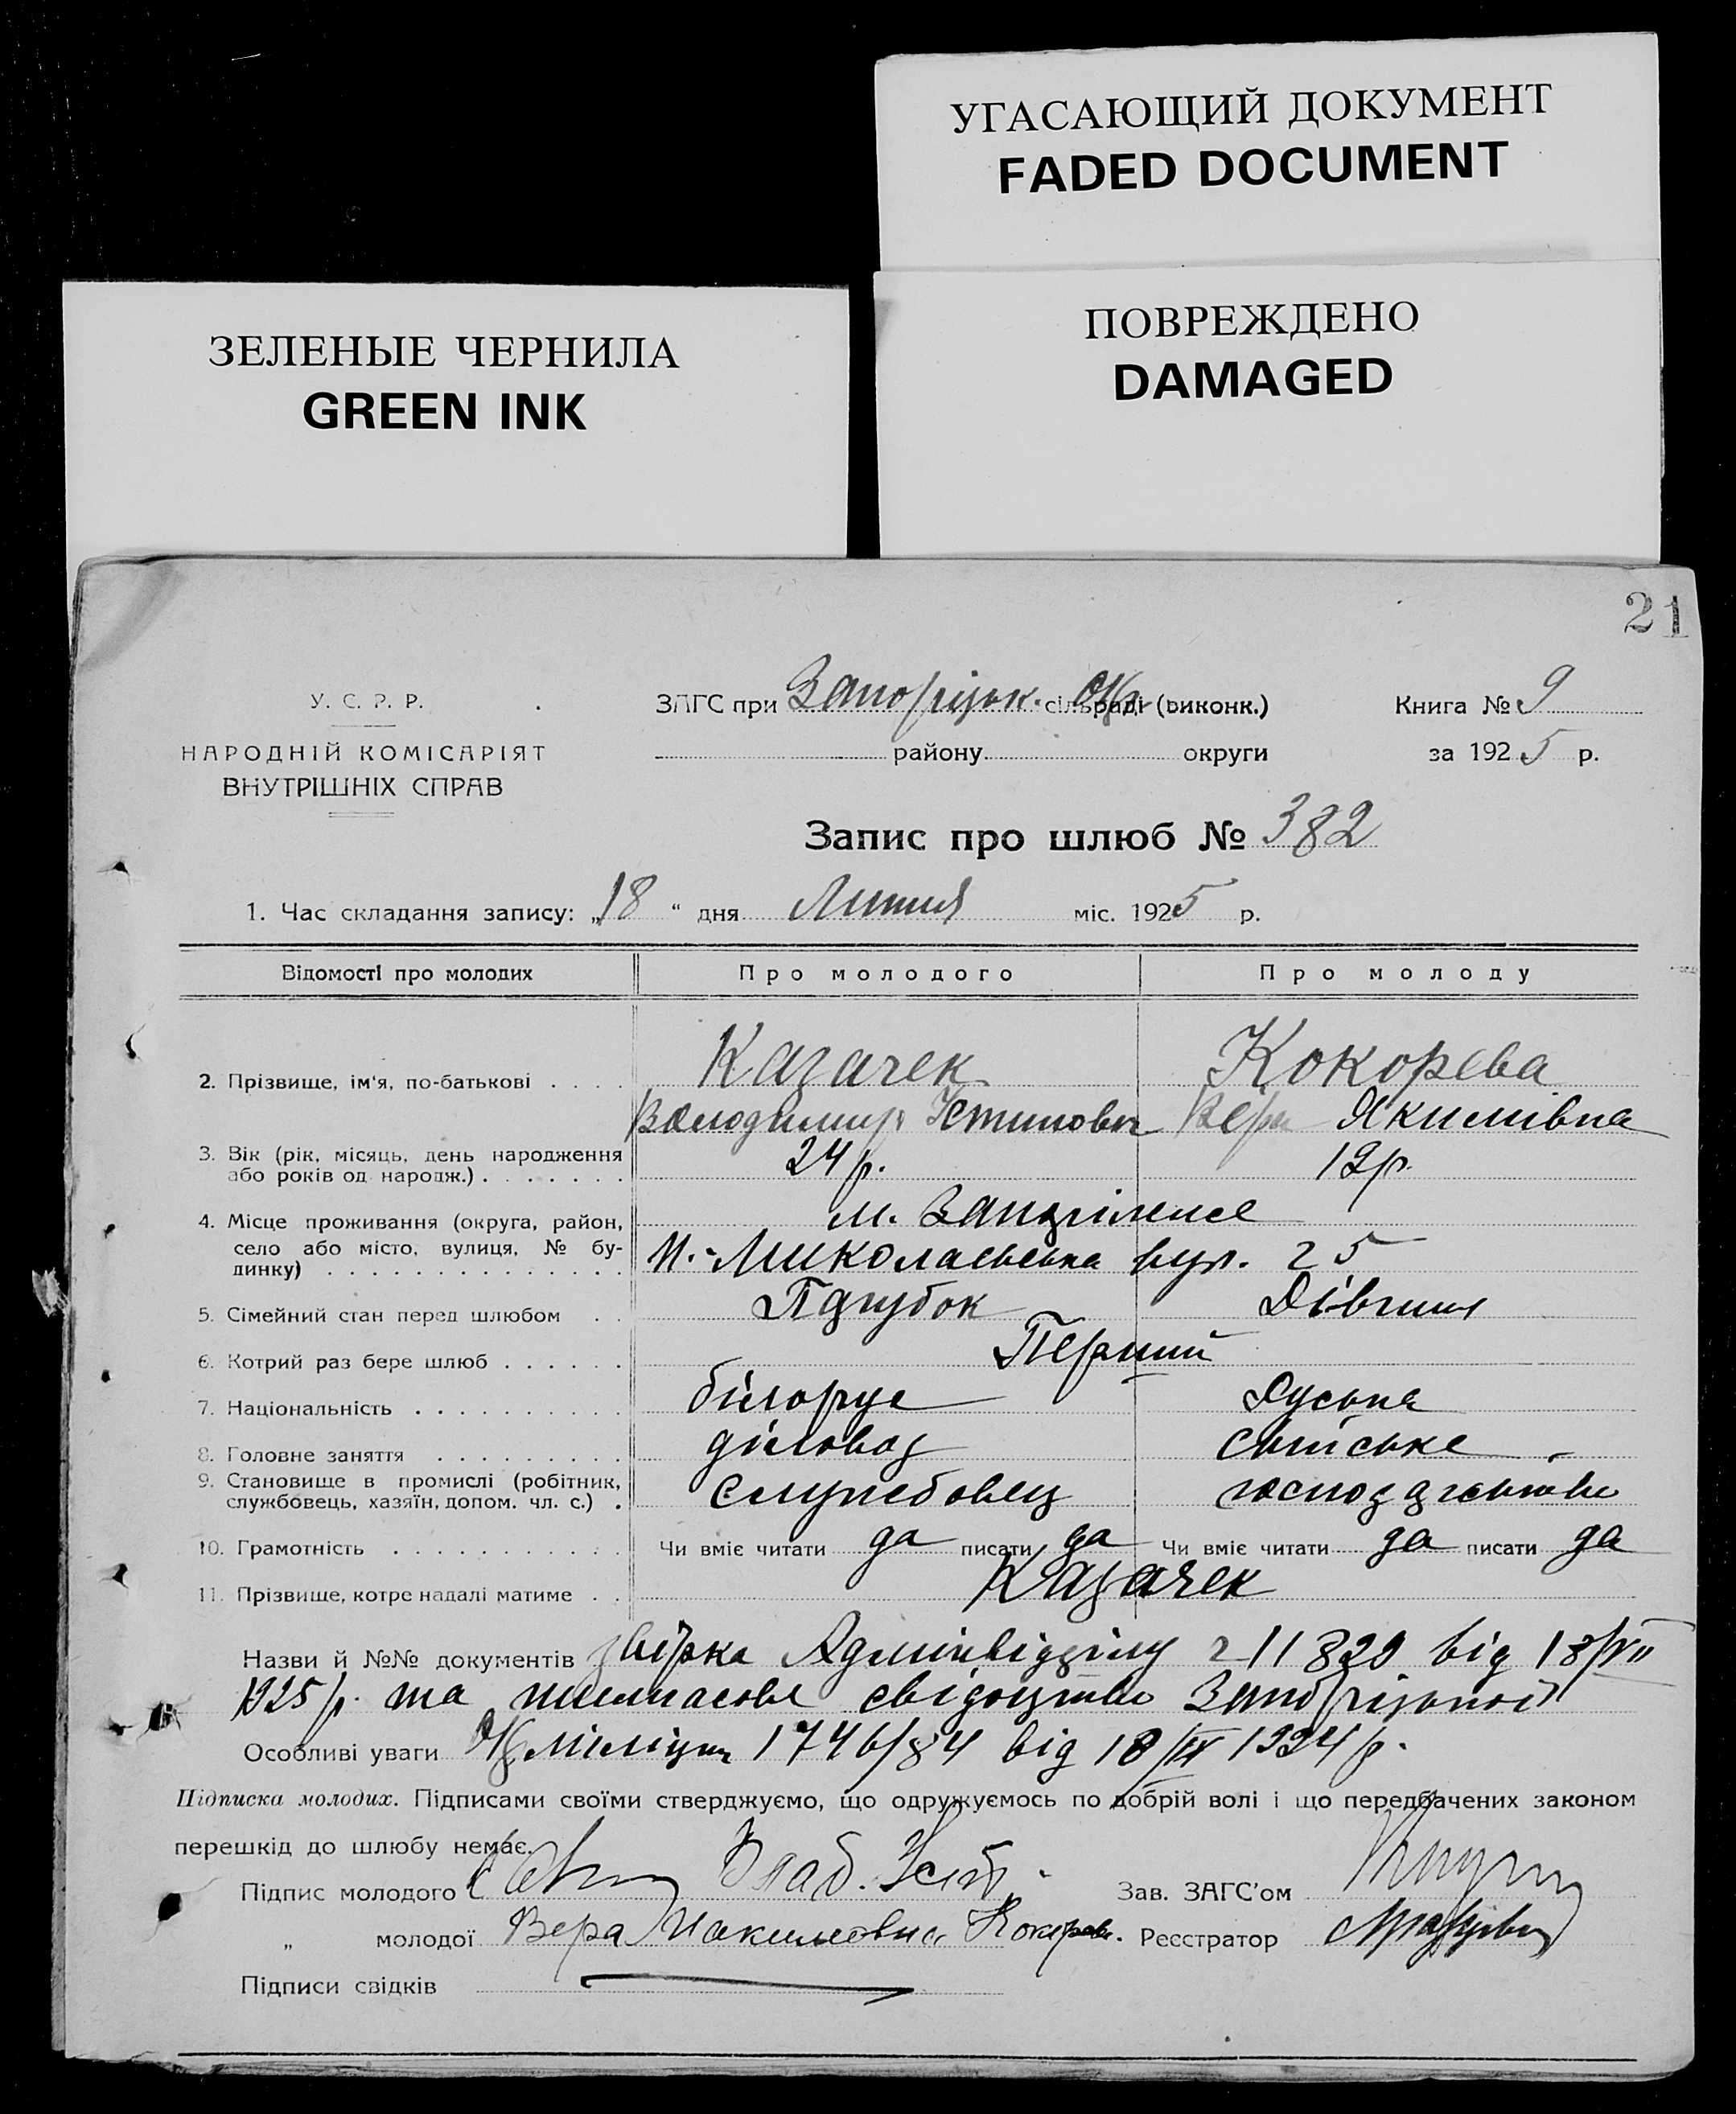 УГАСАЮЩИЙ ДОКУМЕНТ
FADED DOCUMENT
ЗЕЛЕНЫЕ ЧЕРНИЛА
GREEN INK
ПОВРЕЖДЕНО
DAMAGED
21
У. С. Р. Р.
НАРОДНІЙ КОМІСАРІЯТ
ВНУТРІШНІХ СПРАВ
ЗАГС при Запорізьк. Окр. сільраді (виконк.)
району округи
Книга № 9
за 1925 р.
Запис про шлюб № 382
1. Час складання запису: „18“ дня Липня міс. 1925 р.
Відомості про молодих Про молодого Про молоду
2. Прізвище, ім'я, по-батькові Казачек Кокорева
Володимир Устинович Вера Якимівна
3. Вік (рік, місяць, день народження
або років од народж.) 24 р. 19 р.
4. Місце проживання (округа, район, м. Запоріжжє
село або місто, вулиця, № бу-
динку) Н.-Миколаєвська вул. 25
5. Сімейний стан перед шлюбом Парубок Дівчина
6. Котрий раз бере шлюб Перший
7. Національність білорус Руська
8. Головне заняття діловод сільське
9. Становище в промислі (робітник,
службовець, хазяїн, допом. чл. с.) Службовец господарство
10. Грамотність Чи вміє читати да писати да Чи вміє читати да писати да
11. Прізвище, котре надалі матиме Казачек
Назви й №№ документів Адмінвідділу 11820 від 18/VII
1925 р. та тимчасове свідоцтво Запорізької
Особливі уваги Окр міліції 1746/84 від 18/IX 1924 р.
Підписка молодих. Підписами своїми стверджуємо, що одружуємось по добрій волі і що передбачених законом
перешкід до шлюбу немає.
Підпис молодого Влад. Уст. Зав. ЗАГС'ом
„ молодої Вера Иакимовна Кокорева. Реєстратор
Підписи свідків